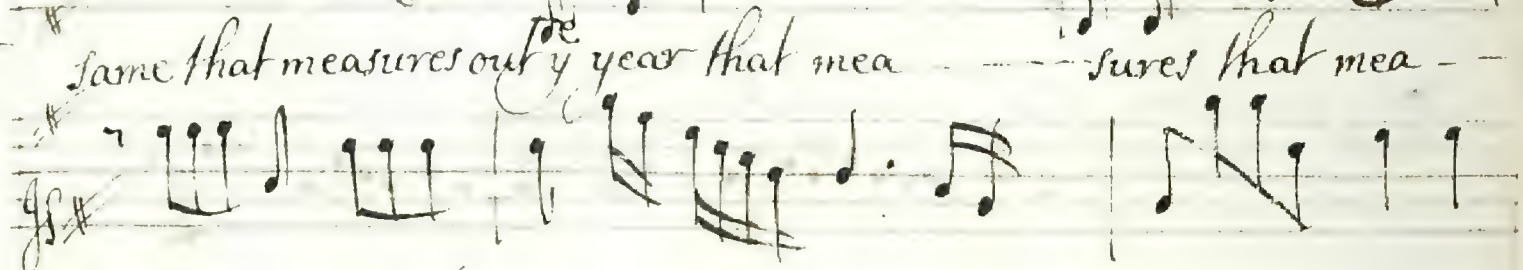 same that measures out yͤ year that mea - - - - sures that mea - -